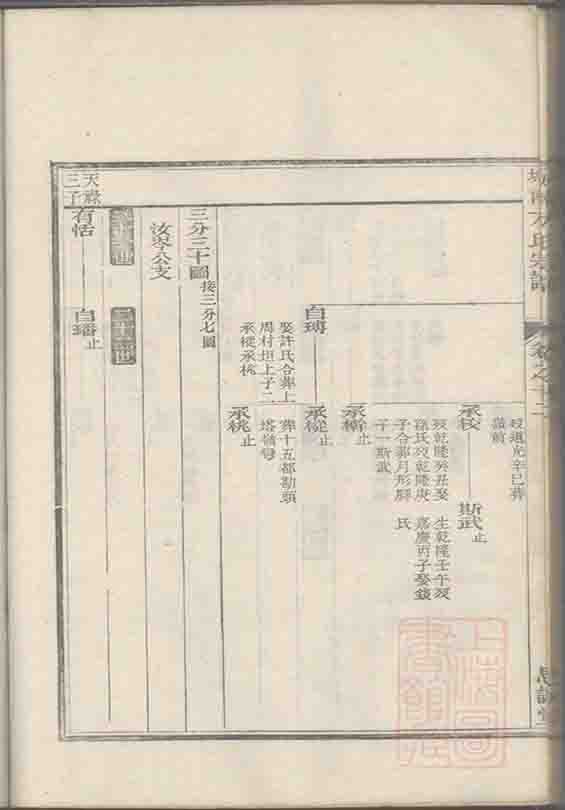 方氏宗譜
卷之十二
思誠堂
歿道光辛巳葬
嶺前
承校
斯武止
歿乾隆癸丑娶
孫氏歿乾隆庚
子合葬月形腳
子一斯武
生乾隆壬午歿
嘉慶丙子娶錢
氏
承榦止
自瑃
承樅止
娶許氏合葬上
周村坦上子二
承樅承桃
葬十五都勘頭
塔嶺灣
承桃止
三分三十圖接三分七圖
汝岑公支
三十二世
天祿
三子
有恬
自璠止
上海圖書館藏